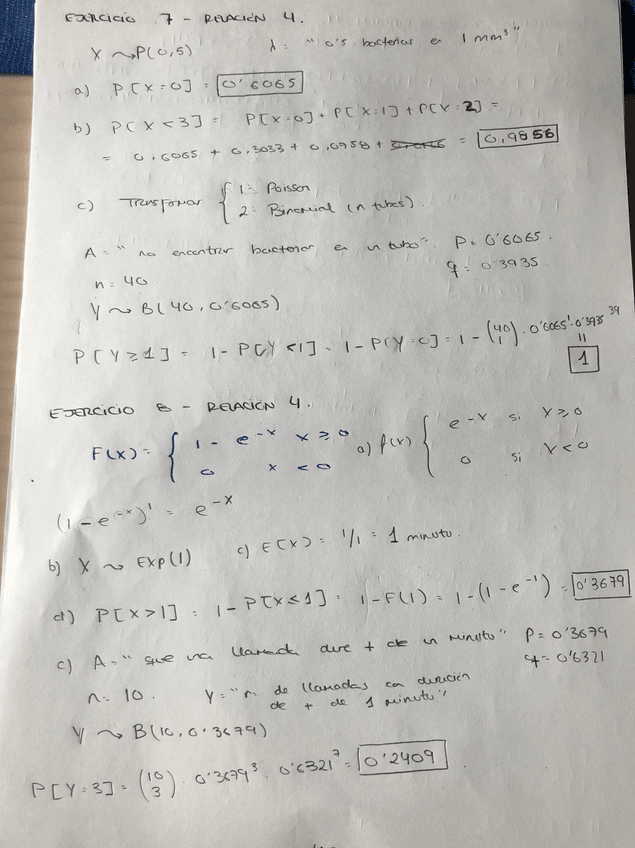 EJERCICIO 7 - RELACIÓN 4.
X ~ P(0,5) λ = "0'5 bacterias en 1 mm³"
a) P[X=0] = 0'6065
b) P[X<3] = P[X=0] + P[X=1] + P[X=2] =
= 0,6065 + 0,3033 + 0,0758 + = 0,9856
c) Transformar { 1= Poisson
2= Binomial (n tubos).
A = "no encontrar bacterias en un tubo". P = 0'6065.
q = 0'3935
n = 40
Y ~ B(40, 0'6065)
P[Y≥1] = 1 - P[Y<1] = 1 - P[Y=0] = 1 - (40 1) · 0'6065¹ · 0'3935³⁹
= 1
EJERCICIO 8 - RELACIÓN 4.
F(x) = { 1 - e^-x x ≥ 0 a) f(x) { e^-x si x ≥ 0
0 x < 0 0 si x < 0
(1 - e^-x)' = e^-x
b) X ~ Exp(1) c) E[X] = 1/1 = 1 minuto.
d) P[X>1] = 1 - P[X≤1] = 1 - F(1) = 1 - (1 - e^-1) = 0'3679
c) A = "que una llamada dure + de un minuto" P = 0'3679
q = 0'6321
n = 10. Y = "nº de llamadas con duración
de + de 1 minuto"
Y ~ B(10, 0'3679)
P[Y=3] = (10 3) · 0'3679³ · 0'6321⁷ = 0'2409